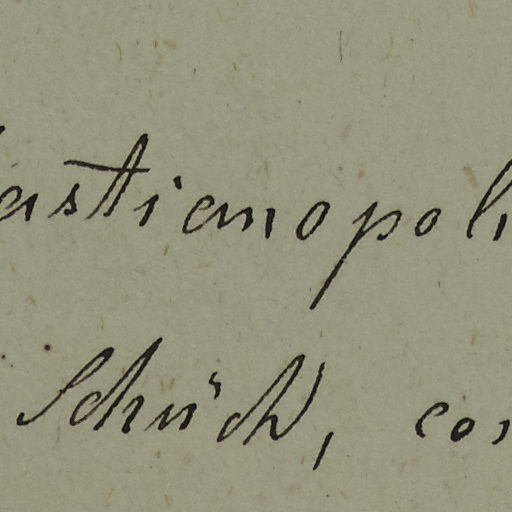 astianopoli
Schüch, co